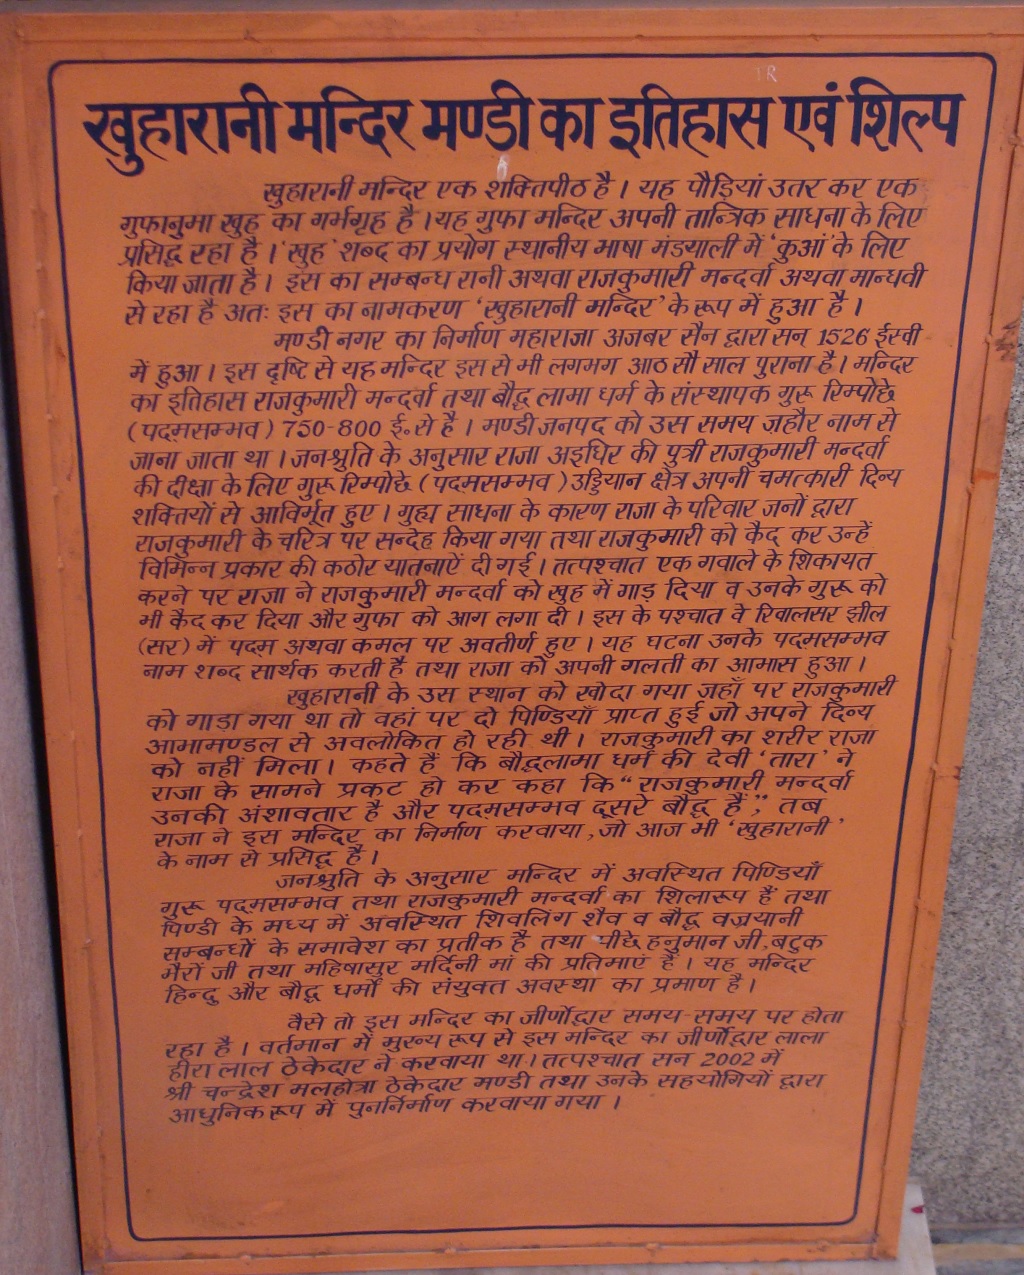 खुहारानी मन्दिर मण्डी का इतिहास एवं शिल्प
खुहारानी मन्दिर एक शक्तिपीठ है। यह पौड़ियां उतर कर एक
गुफानुमा खुह का गर्भगृह है। यह गुफा मन्दिर अपनी तान्त्रिक साधना के लिए
प्रसिद्ध रहा है। 'खुह' शब्द का प्रयोग स्थानीय भाषा मंडयाली में 'कुआं' के लिए
किया जाता है। इस का सम्बन्ध रानी अथवा राजकुमारी मन्दर्वा अथवा मान्धवी
से रहा है अतः इस का नामकरण 'खुहारानी मन्दिर' के रूप में हुआ है।
मण्डी नगर का निर्माण महाराजा अजबर सैन द्वारा सन् 1526 ईस्वी
में हुआ। इस दृष्टि से यह मन्दिर इस से भी लगभग आठ सौ साल पुराना है। मन्दिर
का इतिहास राजकुमारी मन्दर्वा तथा बौद्ध लामा धर्म के संस्थापक गुरू रिम्पोछे
(पदमसम्भव) 750-800 ई. से है। मण्डी जनपद को उस समय ज़हौर नाम से
जाना जाता था। जनश्रुति के अनुसार राजा अइधिर की पुत्री राजकुमारी मन्दर्वा
की दीक्षा के लिए गुरू रिम्पोछे (पदमसम्भव) उड्डियान क्षेत्र अपनी चमत्कारी दिव्य
शक्तियों से आविर्भूत हुए। गुह्य साधना के कारण राजा के परिवार जनों द्वारा
राजकुमारी के चरित्र पर सन्देह किया गया तथा राजकुमारी को कैद कर उन्हें
विभिन्न प्रकार की कठोर यातनाऐं दी गई। तत्पश्चात एक गवाले के शिकायत
करने पर राजा ने राजकुमारी मन्दर्वा को खुह में गाड़ दिया व उनके गुरू को
भी कैद कर दिया और गुफा को आग लगा दी। इस के पश्चात वे रिवालसर झील
(सर) में पदम अथवा कमल पर अवतीर्ण हुए। यह घटना उनके पदमसम्भव
नाम शब्द सार्थक करती है तथा राजा को अपनी गलती का आभास हुआ।
खुहारानी के उस स्थान को खोदा गया जहाँ पर राजकुमारी
को गाड़ा गया था तो वहां पर दो पिण्डियाँ प्राप्त हुई जो अपने दिव्य
आभामण्डल से अवलोकित हो रही थी। राजकुमारी का शरीर राजा
को नहीं मिला। कहते हैं कि बौद्धलामा धर्म की देवी 'तारा' ने
राजा के सामने प्रकट हो कर कहा कि "राजकुमारी मन्दर्वा
उनकी अंशावतार है और पदमसम्भव दूसरे बौद्ध हैं," तब
राजा ने इस मन्दिर का निर्माण करवाया, जो आज भी 'खुहारानी'
के नाम से प्रसिद्ध है।
जनश्रुति के अनुसार मन्दिर में अवस्थित पिण्डियाँ
गुरू पदमसम्भव तथा राजकुमारी मन्दर्वा का शिलारूप हैं तथा
पिण्डी के मध्य में अवस्थित शिवलिंग शैव व बौद्ध वज्रयानी
सम्बन्धों के समावेश का प्रतीक है तथा पीछे हनुमान जी, बटुक
भैरों जी तथा महिषासुर मर्दिनी मां की प्रतिमाएं हैं। यह मन्दिर
हिन्दु और बौद्ध धर्मों की संयुक्त अवस्था का प्रमाण है।
वैसे तो इस मन्दिर का जीर्णोद्वार समय-समय पर होता
रहा है। वर्तमान में मुख्य रूप से इस मन्दिर का जीर्णोद्वार लाला
हीरा लाल ठेकेदार ने करवाया था। तत्पश्चात सन 2002 में
श्री चन्द्रेश मलहोत्रा ठेकेदार मण्डी तथा उनके सहयोगियों द्वारा
आधुनिक रूप में पुनर्निर्माण करवाया गया।